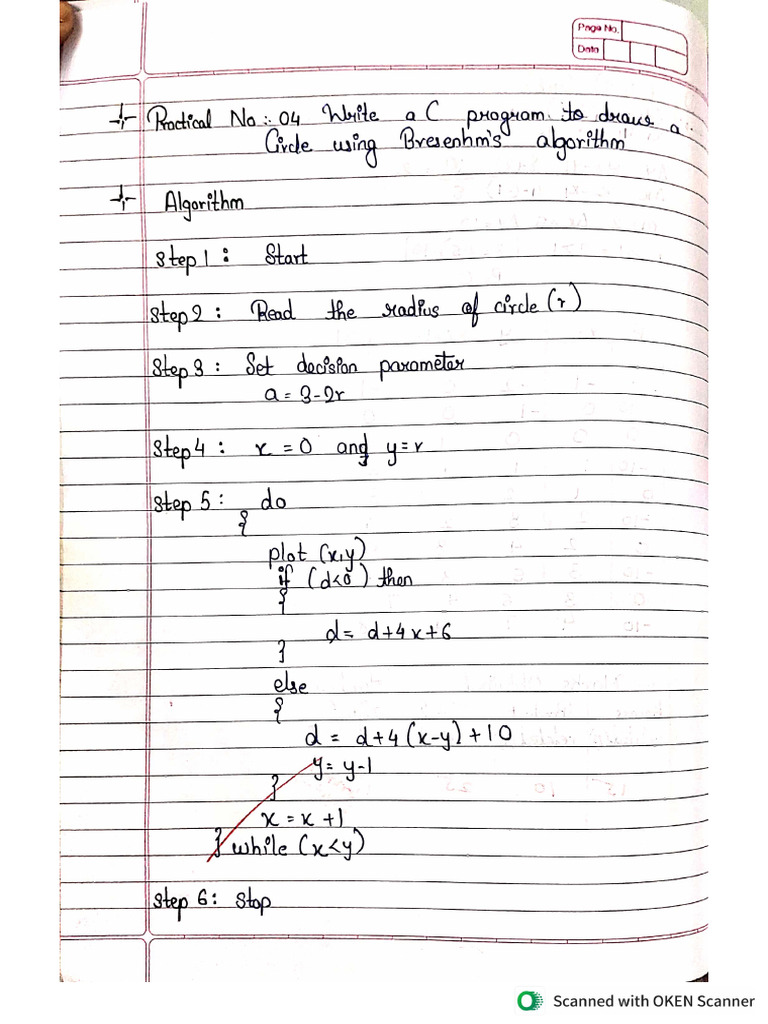 Page No.
Date
Practical No.: 04 Write a C program to draw a
Circle using Bresenhm's algorithm
Algorithm
Step 1 : Start
Step 2 : Read the radius of circle (r)
Step 3 : Set decision parameter
a = 3-2r
Step 4 : x = 0 and y = r
Step 5 : do
{
plot (x,y)
if (d<0) then
{
d = d+4x+6
}
else
{
d = d+4(x-y)+10
y = y-1
}
x = x+1
} while (x<y)
Step 6 : Stop
Scanned with OKEN Scanner